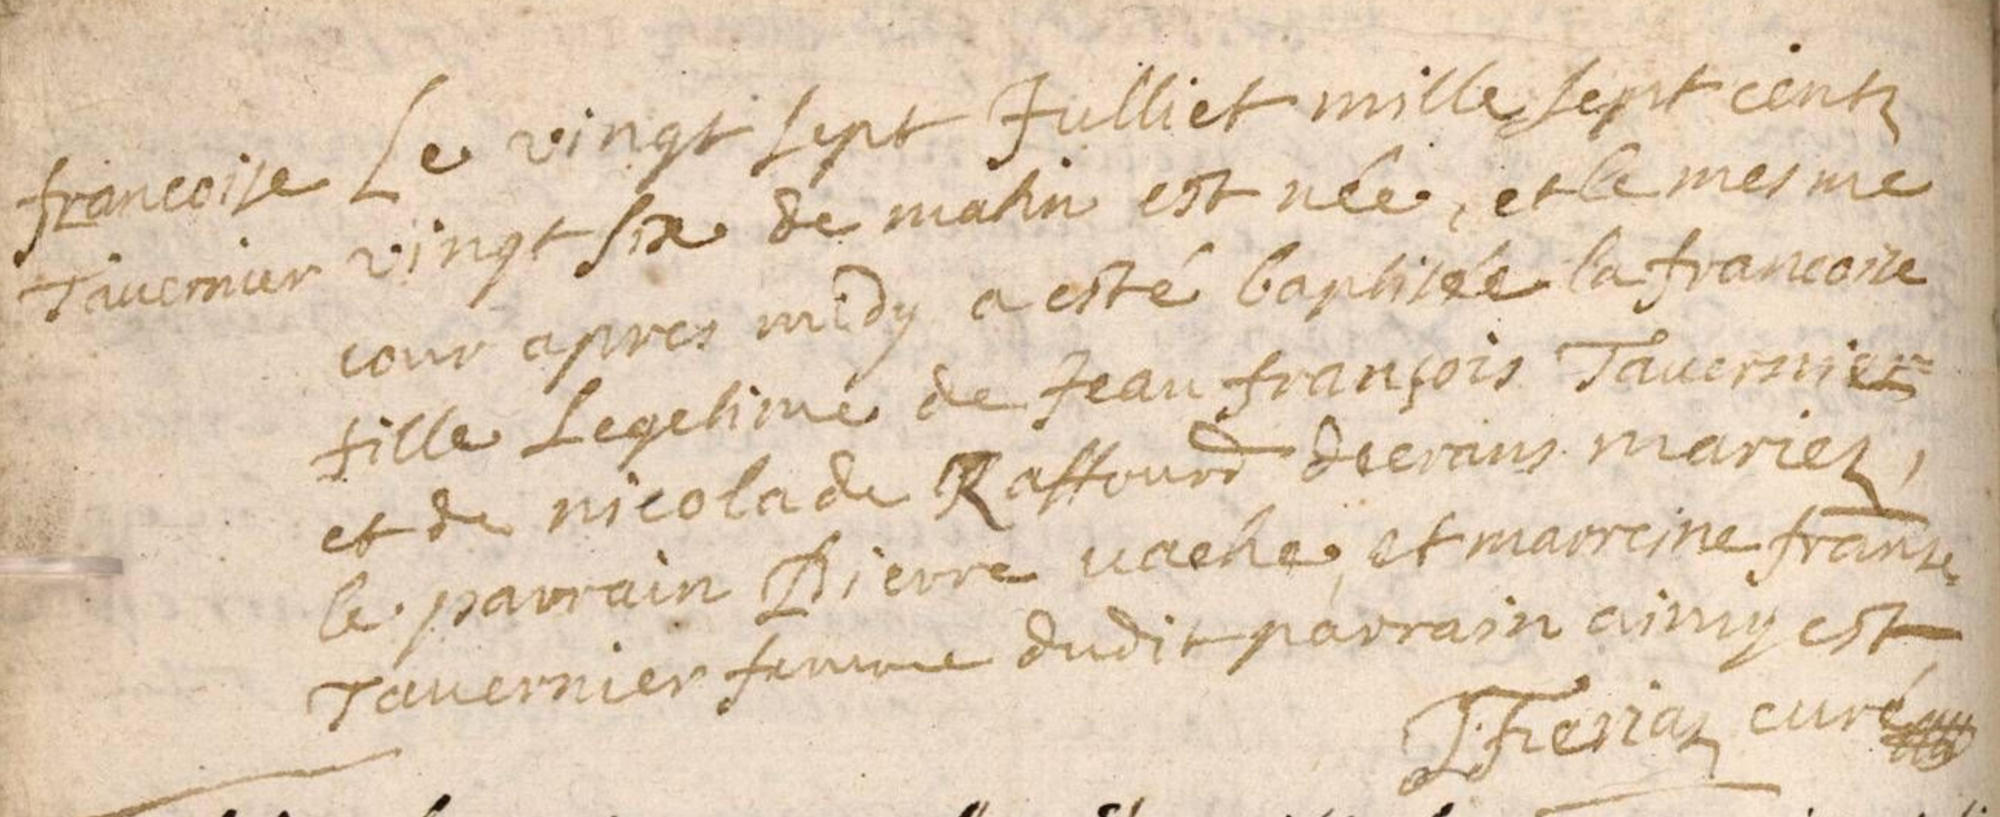 francoise
Tavernier
Le vingt sept Julliet mille sept centz
vingt six de matin est née, et le mesme
iour apres midy a esté baptisée la francoise
fille Legetime de Jean françois Tavernier
et de nicolade Raffourd mariez,
le parrain Pierre vache, et marreine franse
Tavernier femme dudit parrain ainsy est
curé